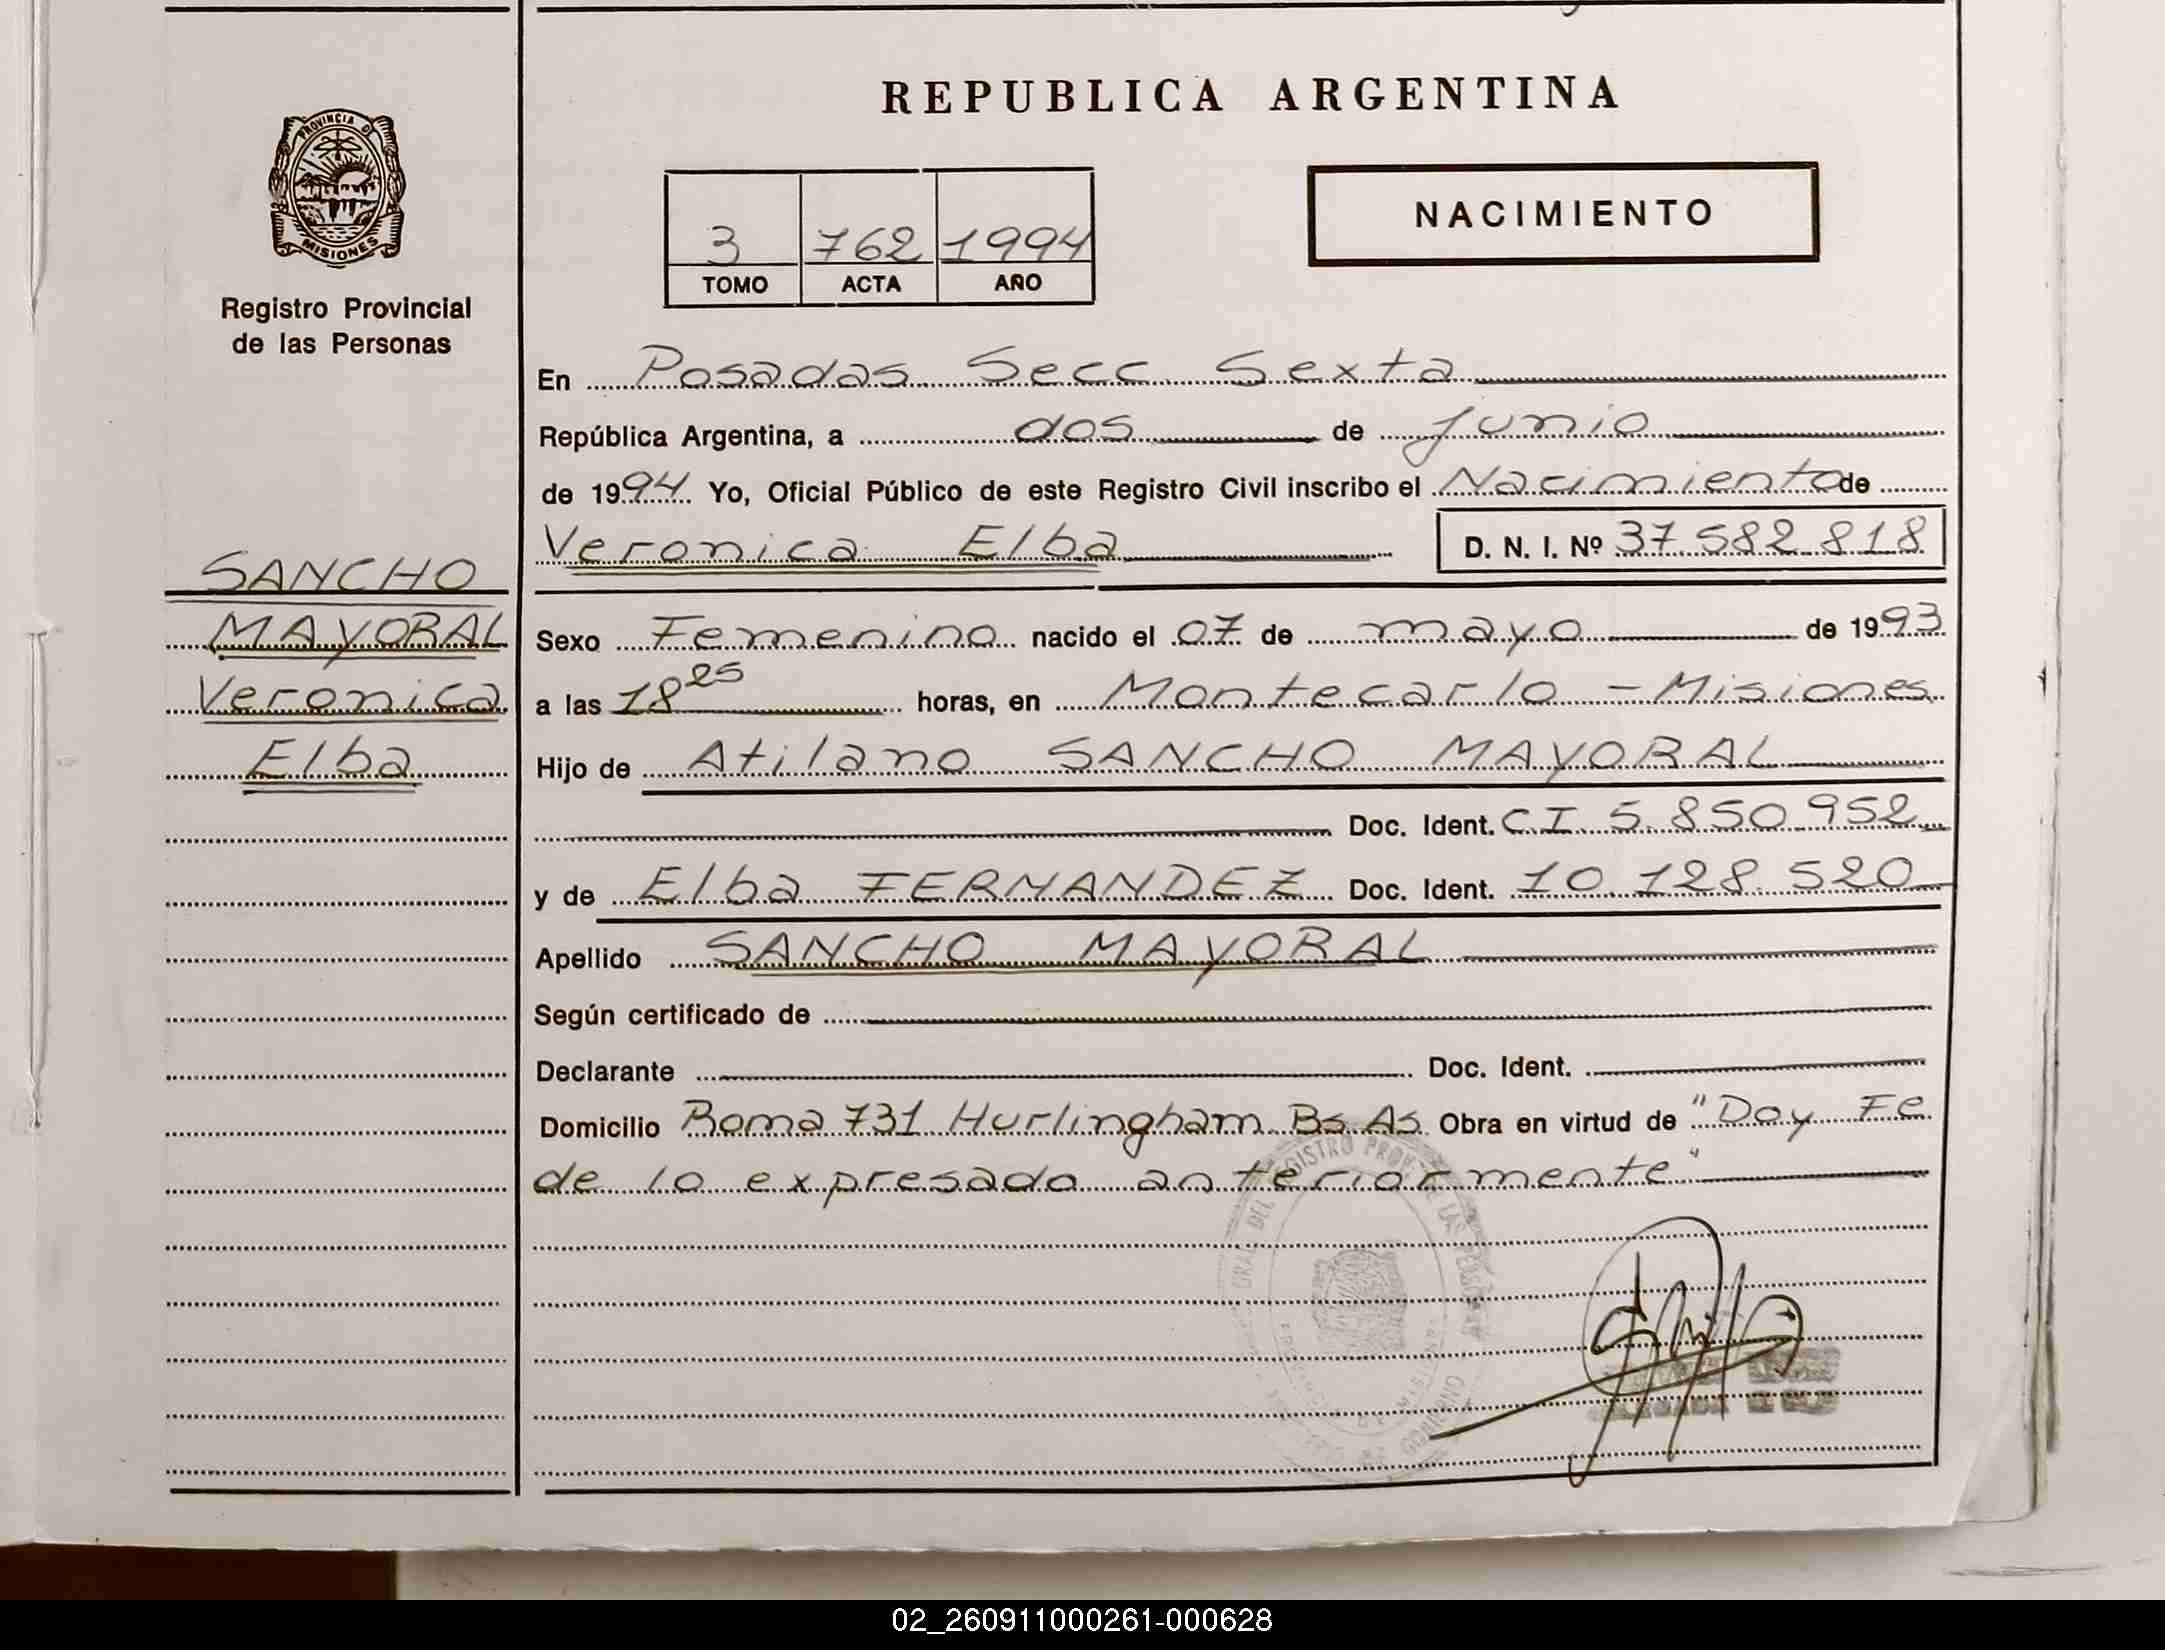 REPUBLICA ARGENTINA
PROVINCIA DE
MISIONES
Registro Provincial
de las Personas
NACIMIENTO
3 762 1994
TOMO ACTA AÑO
En Posadas Secc Sexta
República Argentina, a dos de Junio
de 1994 Yo, Oficial Público de este Registro Civil inscribo el Nacimiento de
Veronica Elba D. N. I. Nº 37 582 818
SANCHO
MAYORAL
Veronica
Elba
Sexo Femenino nacido el 07 de mayo de 1993
a las 18 25 horas, en Montecarlo - Misiones
Hijo de Atilano SANCHO MAYORAL
Doc. Ident. CI 5.850.952
y de Elba FERNANDEZ Doc. Ident. 10.128.520
Apellido SANCHO MAYORAL
Según certificado de
Declarante Doc. Ident.
Domicilio Roma 731 Hurlingham Bs As Obra en virtud de "Doy Fe
de lo expresado anteriormente"
GRAL DEL REGISTRO PROV. DE LAS PERSONAS
GOBIERNO
02_260911000261-000628